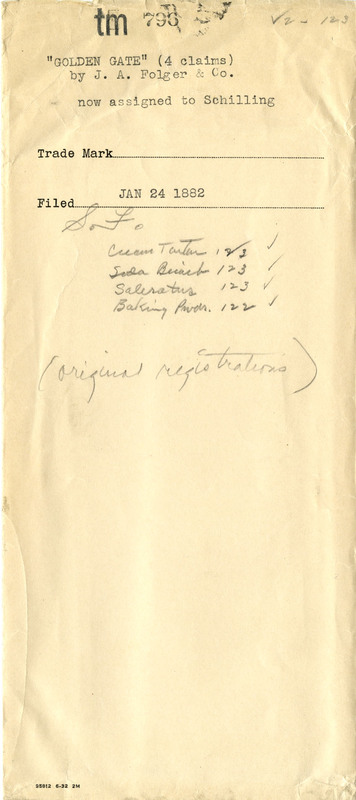 tm 796
√2 - 123
"GOLDEN GATE" (4 claims)
by J. A. Folger & Co.
now assigned to Schilling
Trade Mark
Filed JAN 24 1882
S. F.
Cream Tartar 123 ✓
Soda Bicarb 123 ✓
Saleratus 123 ✓
Baking Pwdr. 122 ✓
(original registrations)
25512 6-32 2M